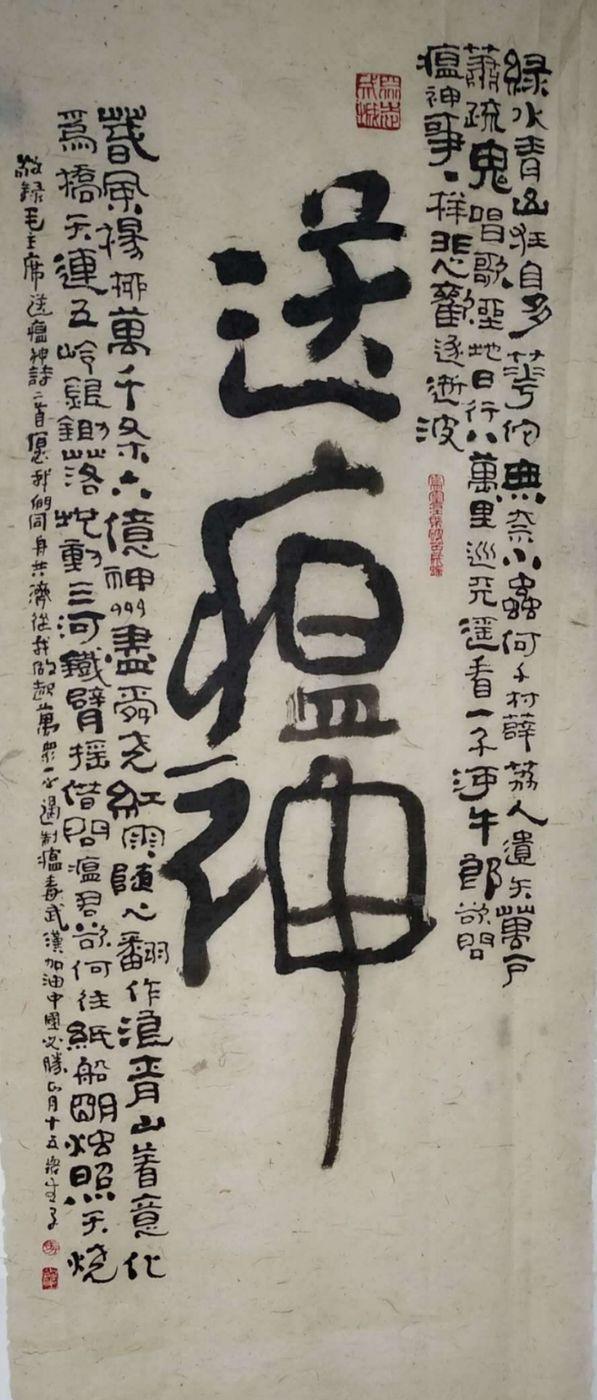 綠水青山枉自多華佗無奈小蟲何千村薜荔人遺矢萬户
蕭疏鬼唱歌坐地日行八萬里巡天遥看一千河牛郎欲問
瘟神事一樣悲歡逐逝波
送瘟神
春風楊柳萬千条六億神州盡舜尧紅雨随心翻作浪青山着意化
爲橋天連五岭銀鋤落地動三河鐵臂摇借問瘟君欲何往紙船明烛照天燒
敬録毛主席送瘟神詩二首愿我們同舟共濟從我做起萬眾一心遏制瘟毒武漢加油中國必勝正月十五